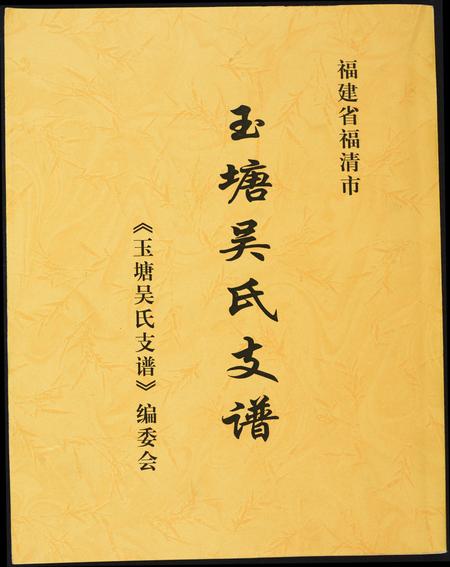 福建省福清市
玉塘吴氏支谱
《玉塘吴氏支谱》编委会